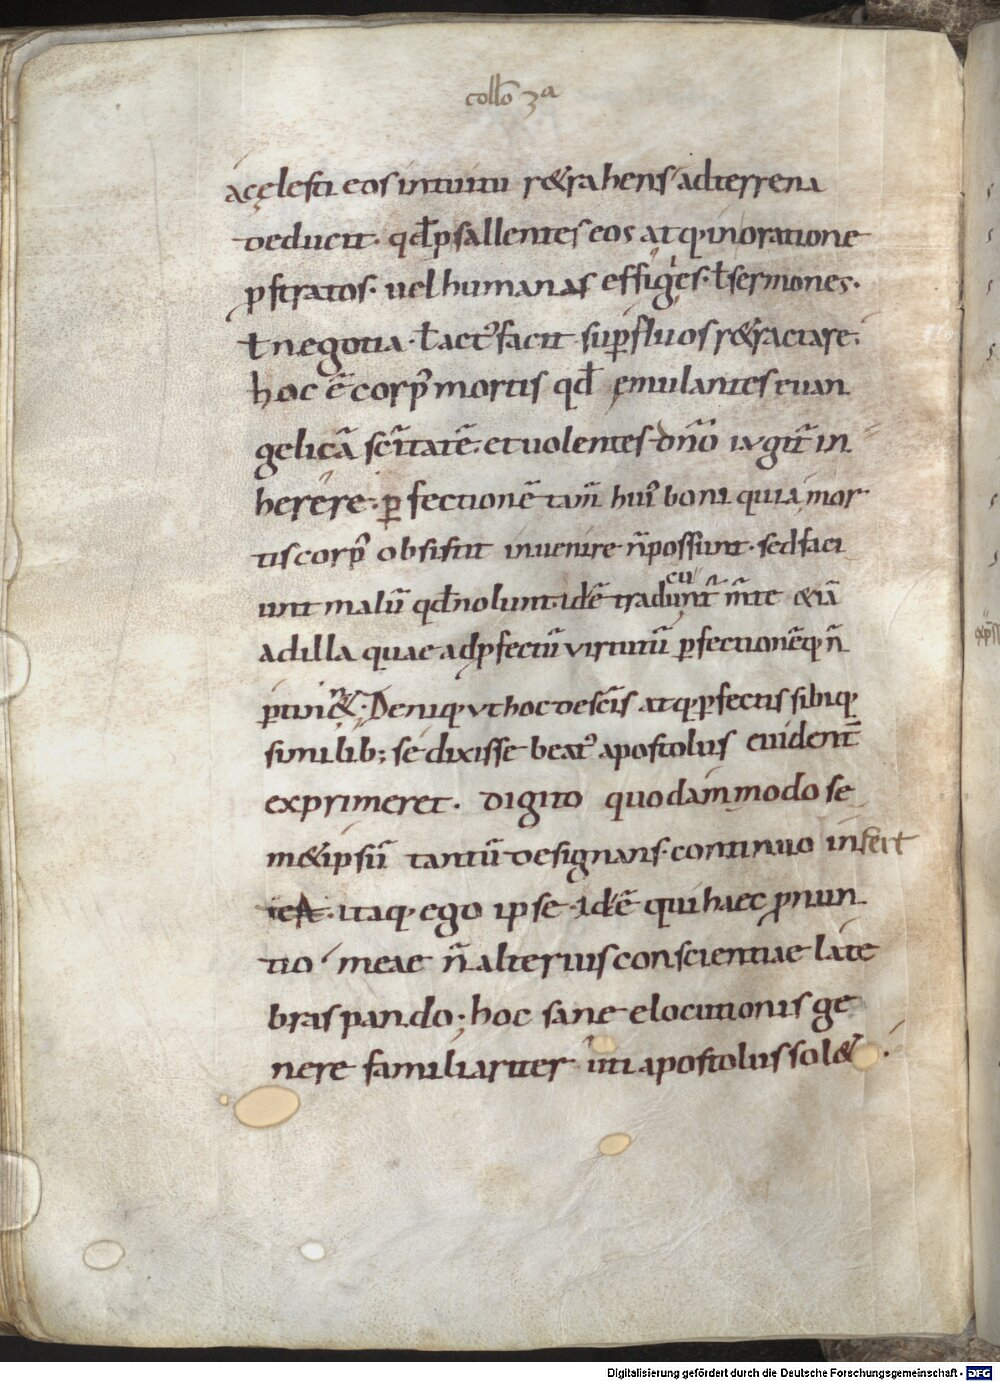 collō 3ª
a cęlesti eos intuitu r&rahens ad terrena
deducit. qđ psallentes eos atq; in oratione
ꝓstratos. uel humanas effigies. ł sermones.
ł negotia. ł actꝰ facit suꝑfluos r&ractare.
hoc ē corpꝰ mortis qđ ęmulantes euan
gelicā sc̄itatē. et uolentes dn̄o iugit̄ in
herere. ꝑfectionē tam̄ huiꝰ boni quia mor
tis corpꝰ obsistit inuenire n̄ possunt. sed faci
unt malū qđ nolunt. idē̄ tradunt̄ m̄te &iā
ad illa quae ad ꝓfectū virtutū ꝑfectionēq; n̄
ꝑtin&. Deniq; vt hoc de sc̄is atq; ꝑfectis sibiq;
similib; se dixisse beatꝰ apostolus euident̄
exprimeret. digito quodam modo se
m&ipsū tantū designans. continuo infert
itaq; ego ipse. idē qui haec ꝓnun
tio meae n̄ alterius conscientiae late
bras pando. hoc sane elocutionis ge
nere familiariter uti apostolus sol&.
Digitalisierung gefördert durch die Deutsche Forschungsgemeinschaft - DFG